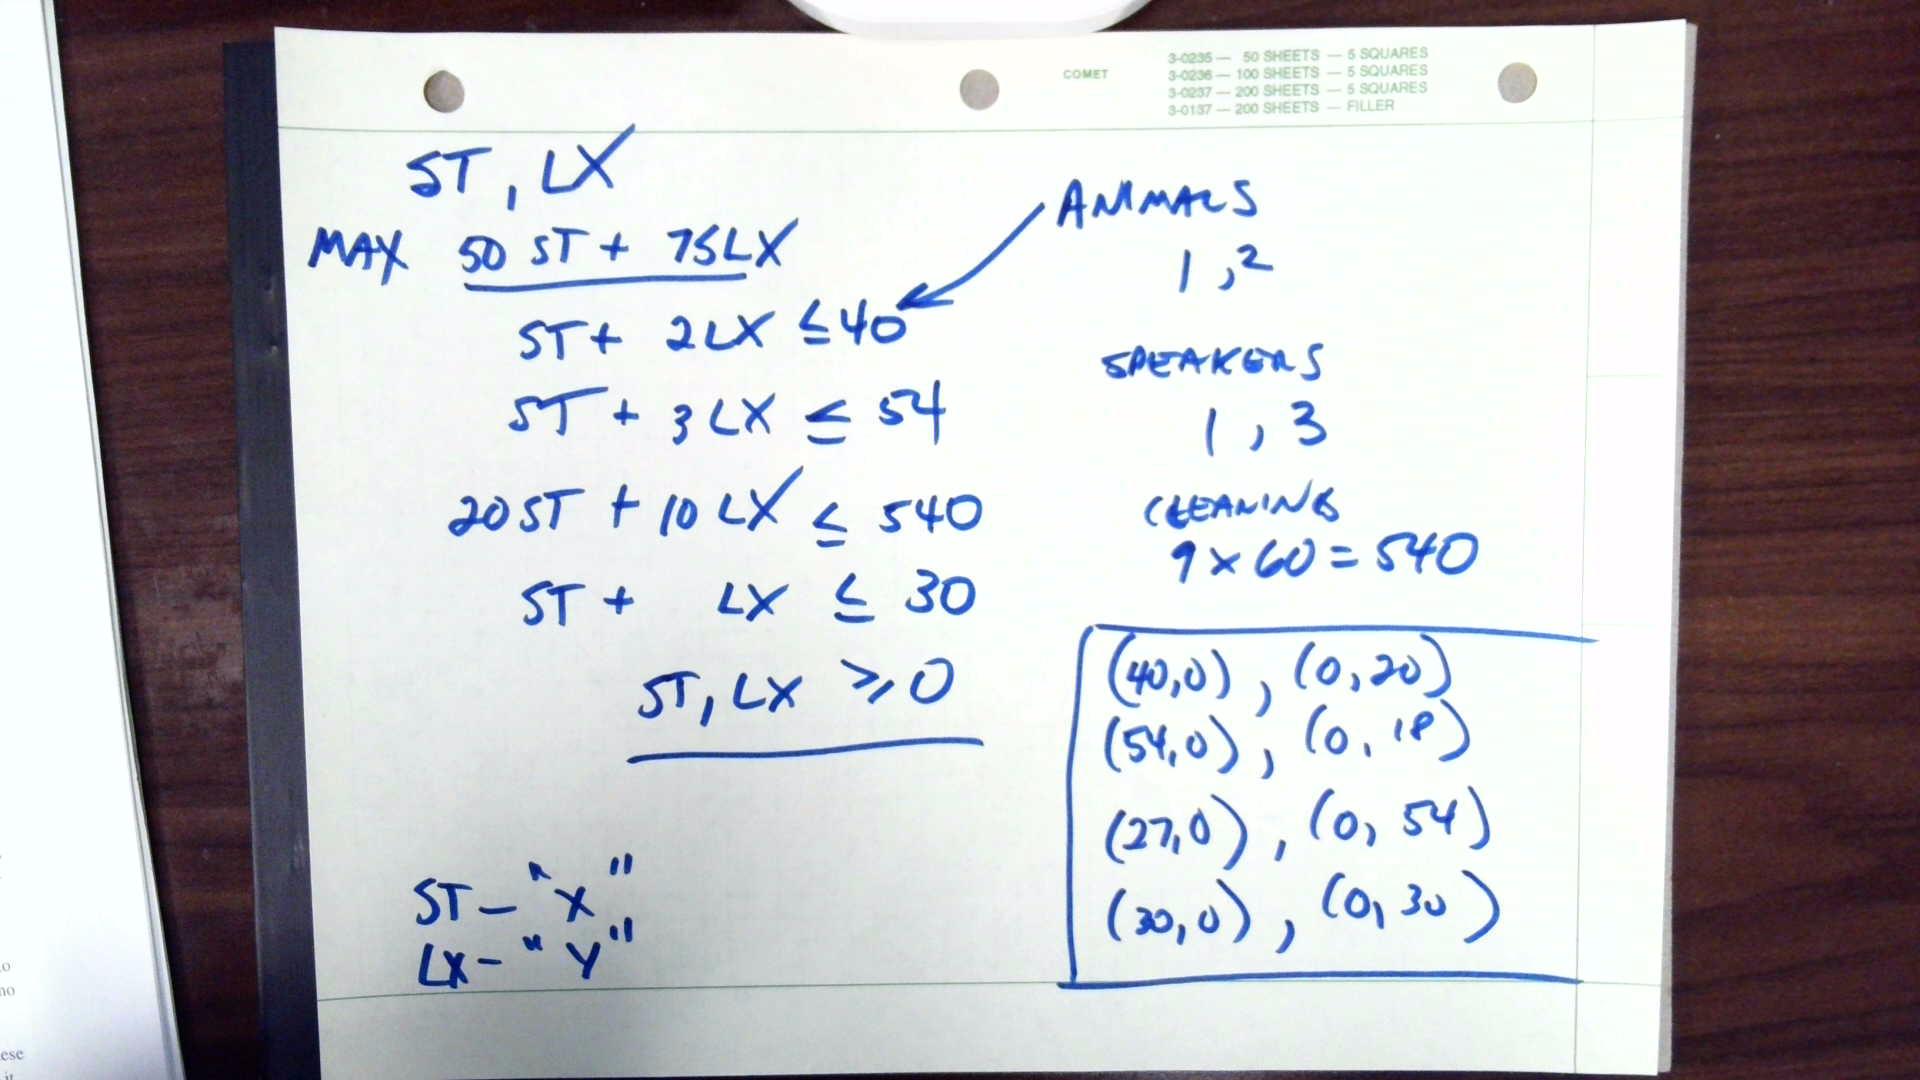 COMET
3-0235 — 50 SHEETS — 5 SQUARES
3-0236 — 100 SHEETS — 5 SQUARES
3-0237 — 200 SHEETS — 5 SQUARES
3-0137 — 200 SHEETS — FILLER
ST, LX
MAX 50 ST + 75LX
ST + 2LX ≤ 40
ST + 3LX ≤ 54
20ST + 10LX ≤ 540
ST + LX ≤ 30
ST, LX ≥ 0
ST - "X"
LX - "Y"
ANIMALS
1, 2
SPEAKERS
1, 3
CLEANING
9 x 60 = 540
(40,0), (0,20)
(54,0), (0,18)
(27,0), (0,54)
(30,0), (0,30)
no
ese
it